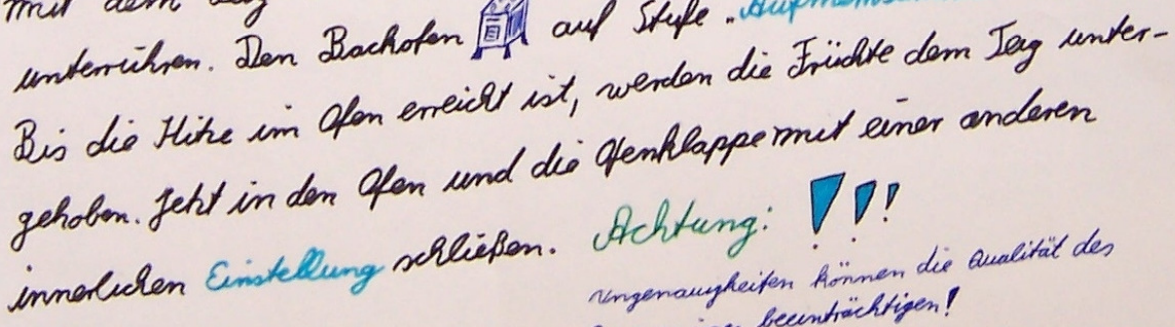 mit dem
unterrühren. Den Backofen auf Stufe "Aufmerksam
Bis die Hitze im Ofen erreicht ist, werden die Früchte dem Teig unter-
gehoben. Jetzt in den Ofen und die Ofenklappe mit einer anderen
innerlichen Einstellung schließen. Achtung: !!!
Ungenauigkeiten können die Qualität des
beeinträchtigen!